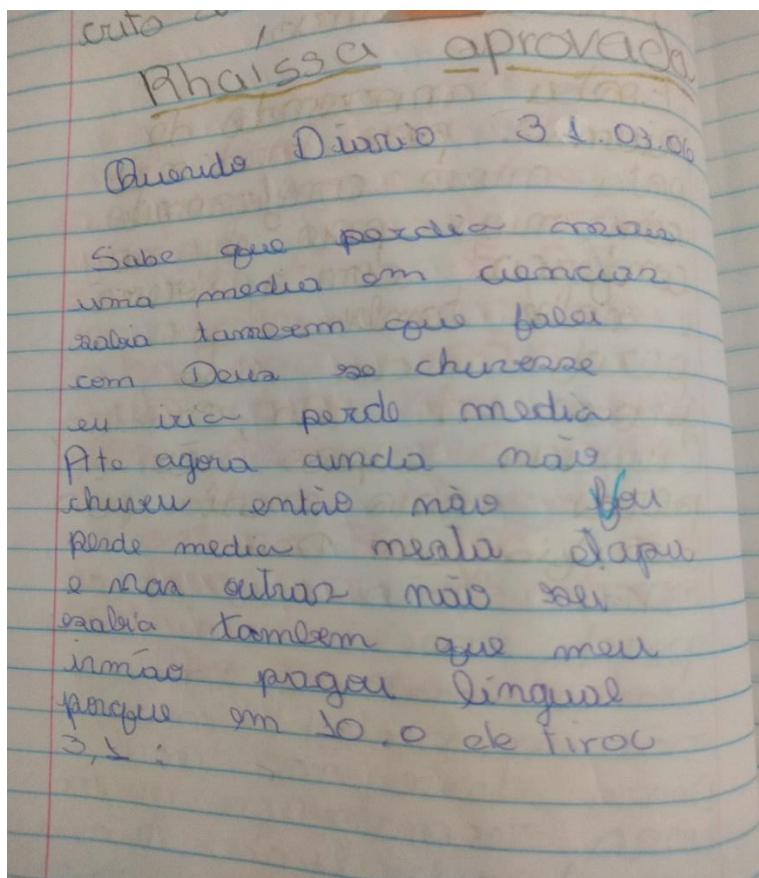 cuto
Rhaíssa aprovada
Querido Diario 31.03.06
Sabe que perdia mais
uma media em ciencias
sabia tambem que falei
com Deus se chuvesse
eu iria perde media
Ate agora ainda não
chuveu então não vou
perde media nesta etapa
e nas outras não sei
sabia tambem que meu
irmão pagou lingual
porque em 10.0 ele tirou
3,1.